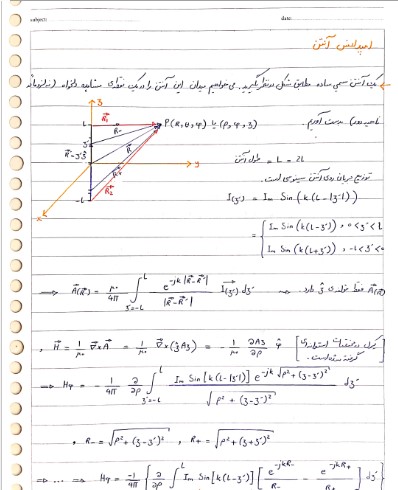 subject: date:
امپدانس آنتن
یک آنتن سیمی ساده مطابق شکل در نظر بگیرید. می‌خواهیم میدان این آنتن را در یک نقطه‌ی مشابه دلخواه
بدست آوریم.
P(R, θ, φ) یا (ρ, φ, z)
z
L
R₁
R₋
z'
R
R'=z'ẑ
R₊
y
-L
R₂
x
طول آنتن = 2L
توزیع جریان روی آنتن سینوسی است.
I(z') = Im Sin(k(L-|z'|))
= { Im Sin(k(L-z')) , 0<z'<L
Im Sin(k(L+z')) , -L<z'<0
⟹ A(R) = μ₀/4π ∫_{z'=-L}^{L} e^{-jk|R-R'|} / |R-R'| I(z') dz' ⟹ A(R) فقط مولفه‌ی ẑ دارد
, H = 1/μ₀ ∇×A = 1/μ₀ ∇×(ẑAz) = -1/μ₀ ∂Az/∂ρ φ̂ [کرل در مختصات استوانه‌ای گرفته شده است.]
⟹ Hφ = -1/4π ∂/∂ρ ∫_{z'=-L}^{L} Im Sin[k(L-|z'|)] e^{-jk√(ρ²+(z-z')²)} / √(ρ²+(z-z')²) dz'
, R₋ = √(ρ²+(z-z')²) , R₊ = √(ρ²+(z+z')²)
⟹ ... ⟹ Hφ = -1/4π { ∂/∂ρ ∫₀^L Im Sin[k(L-z')] [ e^{-jkR₋}/R₋ - e^{-jkR₊}/R₊ ] dz'